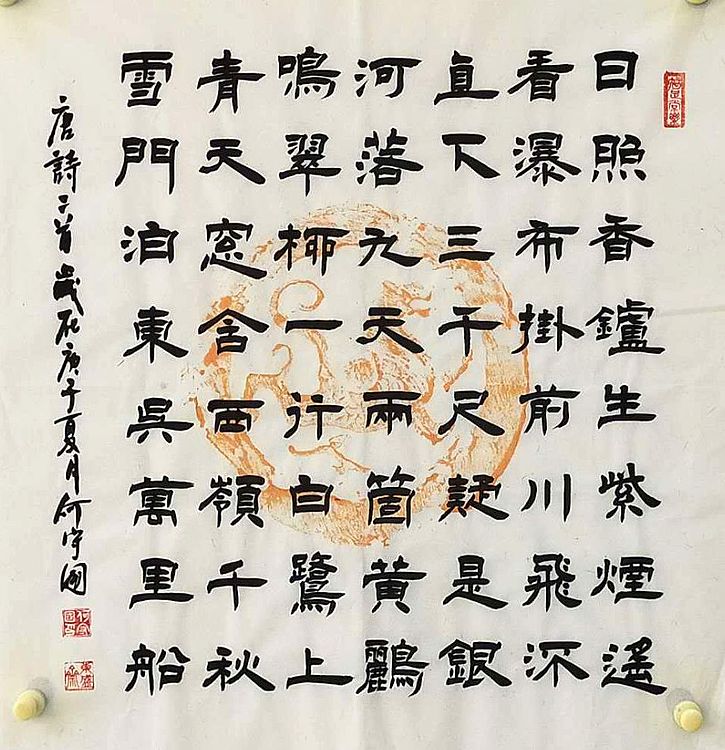 日照香鑪生紫煙遙
看瀑布掛前川飛流
直下三千尺疑是銀
河落九天兩箇黃鸝
鳴翠柳一行白鷺上
青天窓含西嶺千秋
雪門泊東吳萬里船
唐詩二首歲在庚子夏月何守國